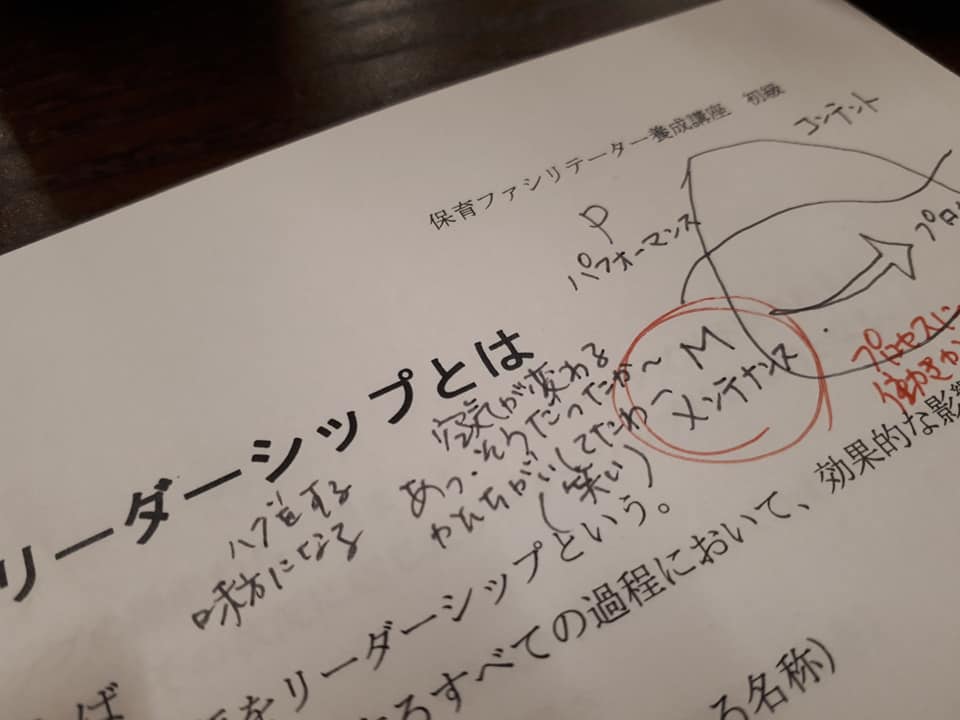 保育ファシリテーター養成講座 初級
コンテント
P
パフォーマンス
プロ
M
メンテナンス
プロセスに
働きか
リーダーシップとは
空気が変わる
あっ、そうだったか〜
かんちがいしてたわ〜
(笑い)
ハブ役する
味方になる
をリーダーシップという。
すべての過程において、効果的な影響
る名称)
ば